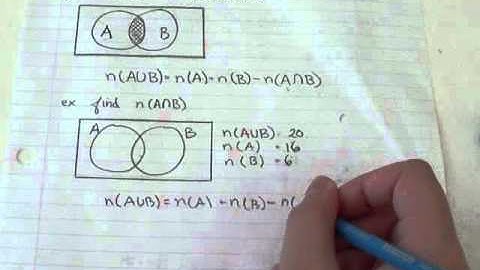 A B
n(A∪B) = n(A) + n(B) - n(A∩B)
ex find n(A∩B)
A B
n(A∪B) = 20
n(A) = 16
n(B) = 6
n(A∪B) = n(A) + n(B) - n(